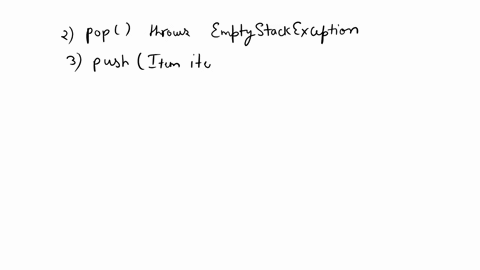 2) pop() throws EmptyStackException
3) push (Item ite